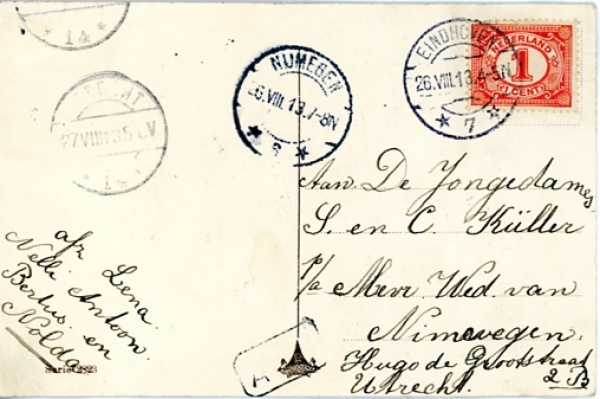 * 14 *
EINDHOVEN
26.VIII.13.4-5N
* 7 *
NEDERLAND
1
(1 CENT)
NIJMEGEN
26.VIII.13.7-8N
* 8 *
27VIII
* 14 *
Aan De Jongedames
S. en C. Küller
p/a Mevr Wed. van
Nimwegen.
Hugo de Grootstraat
2 B
Utrecht.
afz Lena
Nelli Antoon.
Bertus en
Nolda
Serie 2823
A